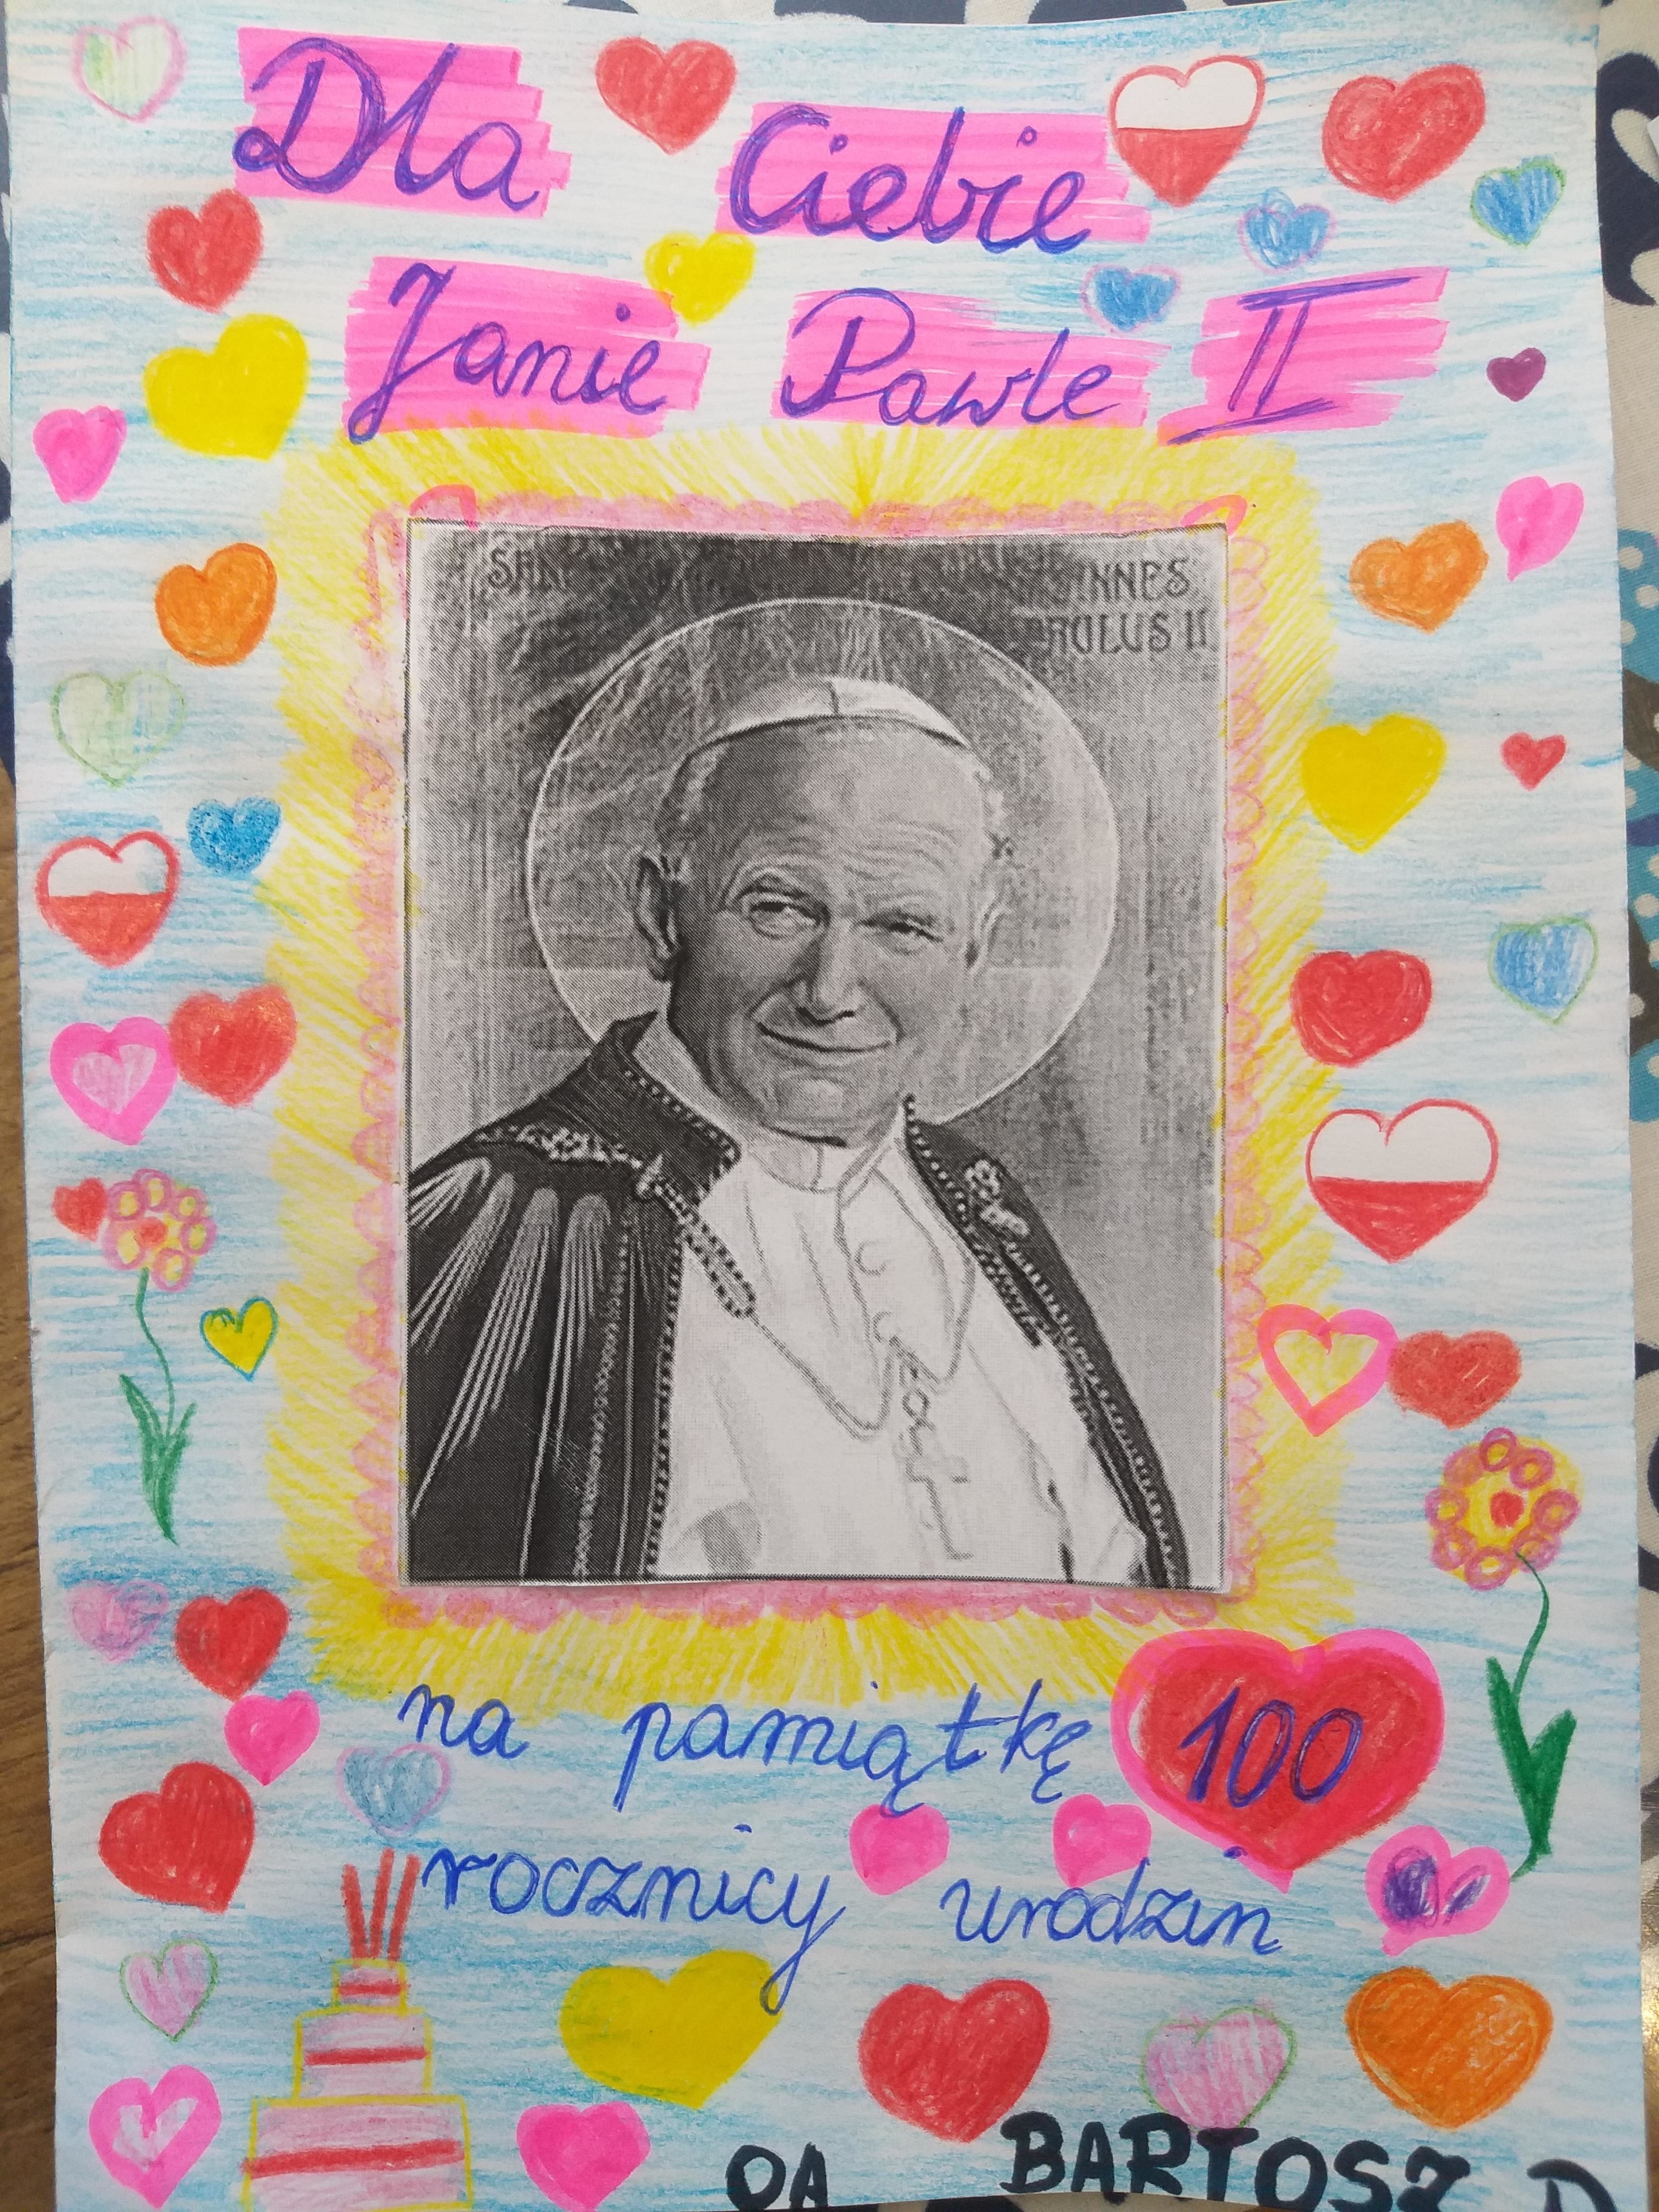 Dla Ciebie
Janie Pawle II
NNES
PAULUS II
na pamiątkę 100
rocznicy urodzin
OA BARTOSZ D